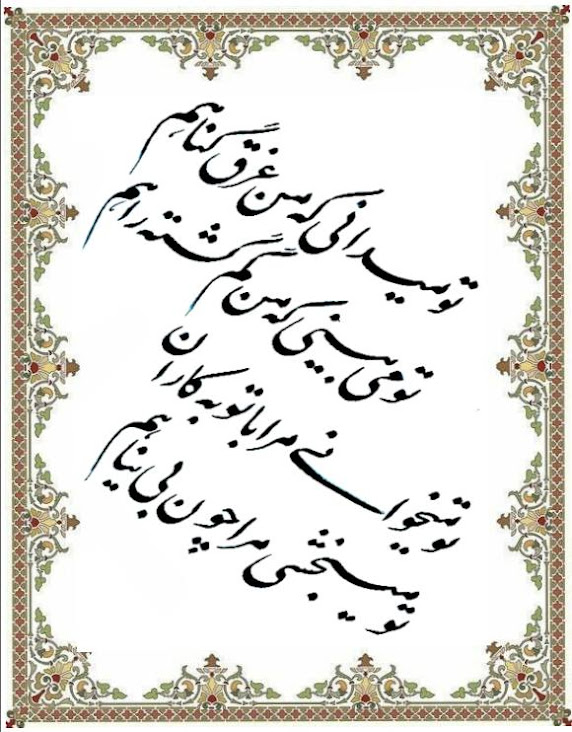 تو میدانی که من غرق گناهم
تو می بینی که من گم گشته راهم
تو میخوانی مرا با توبه کاران
تو میبخشی مرا چون بی پناهم